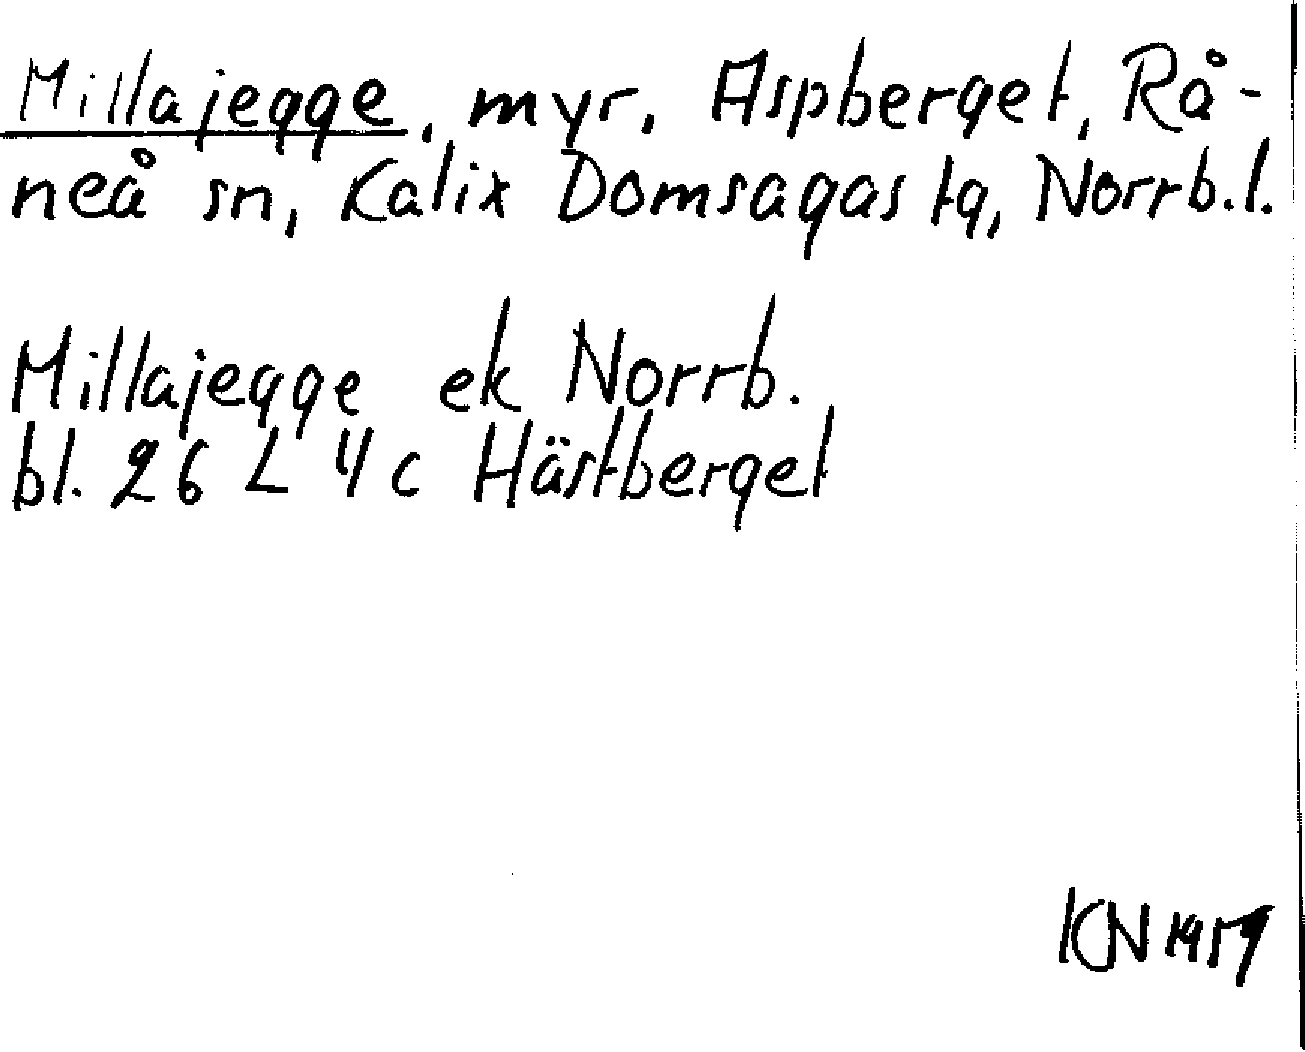 Millajegge, myr, Aspberget, Rå-
neå sn, Kalix Domsagas tg, Norrb.l.
Millajegge ek Norrb.
bl. 26 L 4 c Hästberget
KN